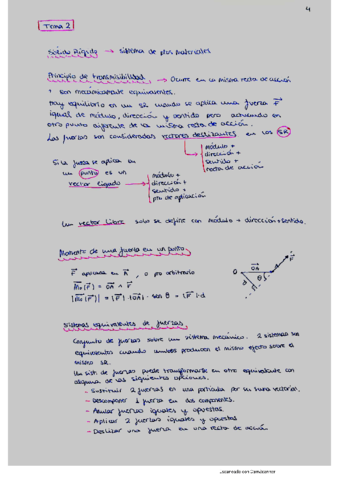 4
Tema 2
Sólido Rígido → sistema de ptos materiales
Principio de transmisibilidad → Ocurre en la misma recta de acción
+ son mecánicamente equivalentes.
Hay equilibrio en un SR cuando se aplica una fuerza F
igual de módulo, dirección y sentido pero actuando en
otro punto diferente de la misma recta de acción.
Las fuerzas son consideradas vectores deslizantes en los SR
módulo +
dirección +
sentido +
recta de acción
Si la fuerza se aplica en
un punto es un
vector ligado
módulo +
dirección +
sentido +
pto de aplicación
Un vector libre solo se define con módulo + dirección + sentido.
Momento de una fuerza en un punto
F aplicada en A, O pto arbitrario
M₀(F) = OA ∧ F
|M₀(F)| = |F| · |OA| · sen θ = |F| · d
O OA A F
θ
d
Sistemas equivalentes de fuerzas
Conjunto de fuerzas sobre un sistema mecánico. 2 sistemas son
equivalentes cuando ambos producen el mismo efecto sobre el
mismo SR.
Un sist de fuerzas puede transformarse en otro equivalente con
alguna de las siguientes opciones.
- Sustituir 2 fuerzas en una aplicada por su suma vectorial.
- Descomponer 1 fuerza en dos componentes.
- Anular fuerzas iguales y opuestas.
- Aplicar 2 fuerzas iguales y opuestas
- Deslizar una fuerza en una recta de acción
Escaneado con CamScanner